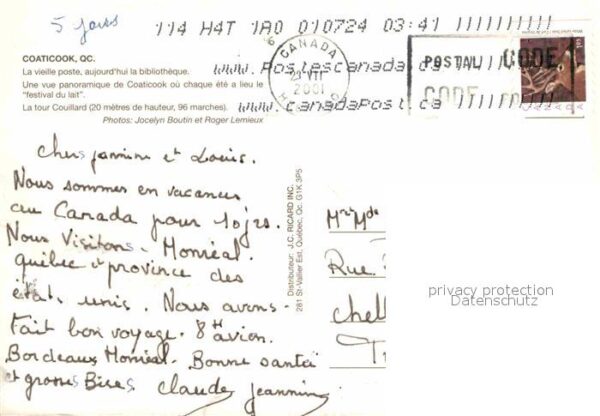 5 jours
114 H4T 1A0 010724 03:41
www.postescanada.ca
www.canadapost.ca
CANADA
23 VII
2001
POSTAL CODE
CODE
CANADA
COATICOOK, QC.
La vieille poste, aujourd'hui la bibliothèque.
Une vue panoramique de Coaticook où chaque été a lieu le
"festival du lait".
La tour Couillard (20 mètres de hauteur, 96 marches).
Photos: Jocelyn Boutin et Roger Lemieux
Chers Jannine et Louis.
Nous sommes en vacances
au Canada pour 10 jrs.
Nous Visitons. Monréal.
québec et province des
état. unis. Nous avons.
Fait bon voyage. 8H avion.
Bordeaux Monréal. Bonne santé
et grosses Bises Claude Jeannine
Distributeur: J.C. RICARD INC.
281 St-Vallier Est, Québec, Qc. G1K 3P5
Mr Mde
Rue
Chell
privacy protection
Datenschutz